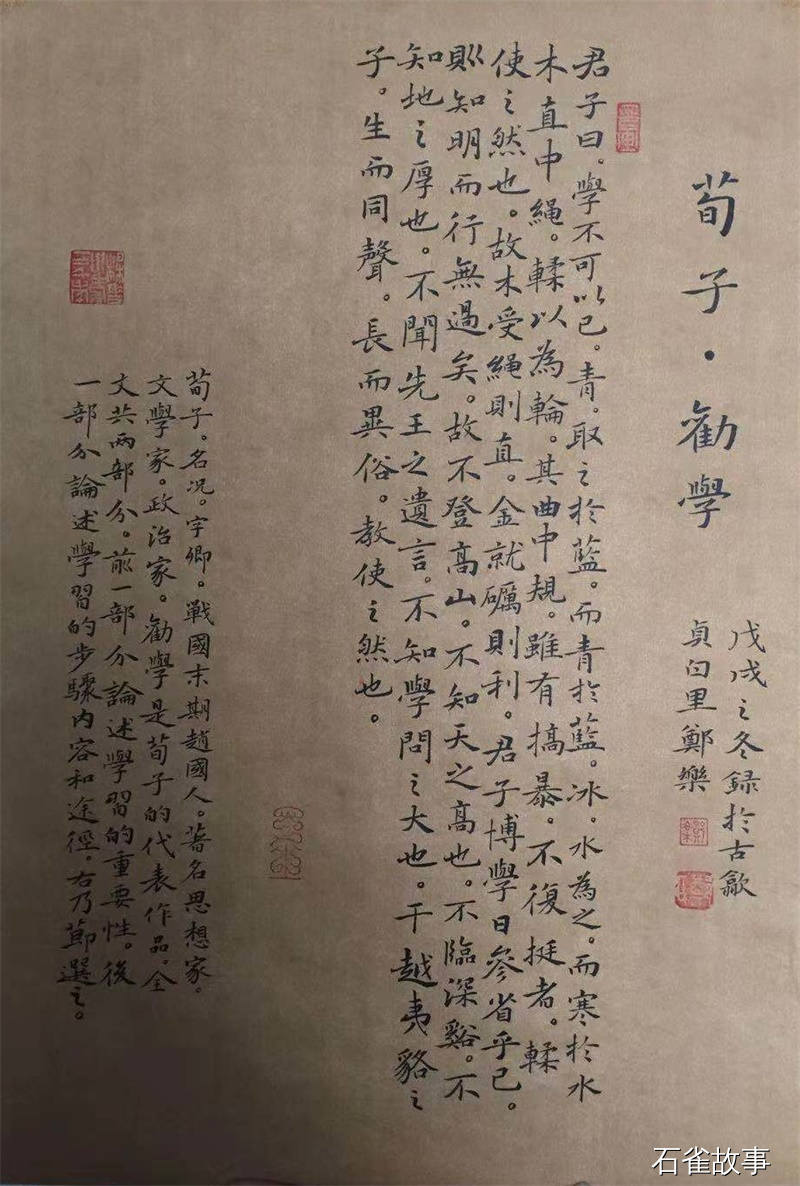 荀子·勸學
戊戌之冬録於古歙
貞白里鄭樂
君子曰。學不可以已。青。取之於藍。而青於藍。冰。水為之。而寒於水
木直中繩。輮以為輪。其曲中規。雖有槁暴。不復挺者。輮
使之然也。故木受繩則直。金就礪則利。君子博學日參省乎己。
則知明而行無過矣。故不登高山。不知天之高也。不臨深谿。不
知地之厚也。不聞先王之遺言。不知學問之大也。干越夷貉之
子。生而同聲。長而異俗。教使之然也。
荀子。名况。字卿。戰國末期趙國人。著名思想家。
文學家。政治家。勸學是荀子的代表作品。全
文共兩部分。前一部分論述學習的重要性。後
一部分論述學習的步驟内容和途徑。右乃節選之。
石雀故事